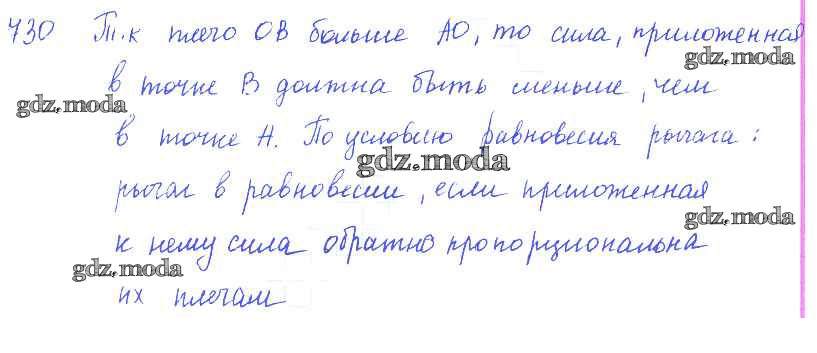 730 Т.к плечо ОВ больше АО, то сила, приложенная
gdz.moda
в точке В должна быть меньше, чем
gdz.moda
gdz.moda
в точке А. По условию равновесия рычага:
gdz.moda
рычаг в равновесии, если приложенная
gdz.moda
к нему сила обратно пропорциональна
gdz.moda
их плечам